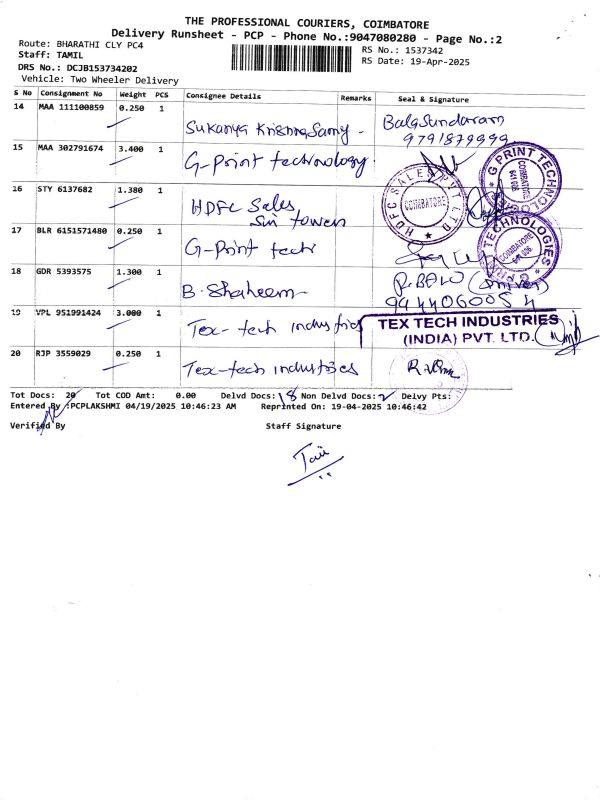 THE PROFESSIONAL COURIERS, COIMBATORE
Delivery Runsheet - PCP - Phone No.:9047080280 - Page No.:2
Route: BHARATHI CLY PC4
RS No.: 1537342
Staff: TAMIL
RS Date: 19-Apr-2025
DRS No.: DCJB153734202
Vehicle: Two Wheeler Delivery
S No Consignment No Weight PCS Consignee Details Remarks Seal & Signature
14 MAA 111100859 0.250 1 Sukanya Krishna Samy - Bala Sundaram
9791879999
15 MAA 302791674 3.400 1 G-Print technology
G PRINT TECHNOLOGIES COIMBATORE
16 STY 6137682 1.380 1 HDFC Sales
Sin towers
HDFC SALES PVT LTD COIMBATORE
17 BLR 6151571480 0.250 1 G-Print tech
G PRINT TECHNOLOGIES COIMBATORE
18 GDR 5393575 1.300 1 B. Shaheem
19 VPL 951991424 3.000 1 Tex-tech industries
TEX TECH INDUSTRIES
(INDIA) PVT. LTD.
20 RJP 3559029 0.250 1 Tex-tech industries
Tot Docs: 20 Tot COD Amt: 0.00 Delvd Docs: 18 Non Delvd Docs: 2 Delvy Pts:
Entered By :PCPLAKSHMI 04/19/2025 10:46:23 AM Reprinted On: 19-04-2025 10:46:42
Verified By Staff Signature